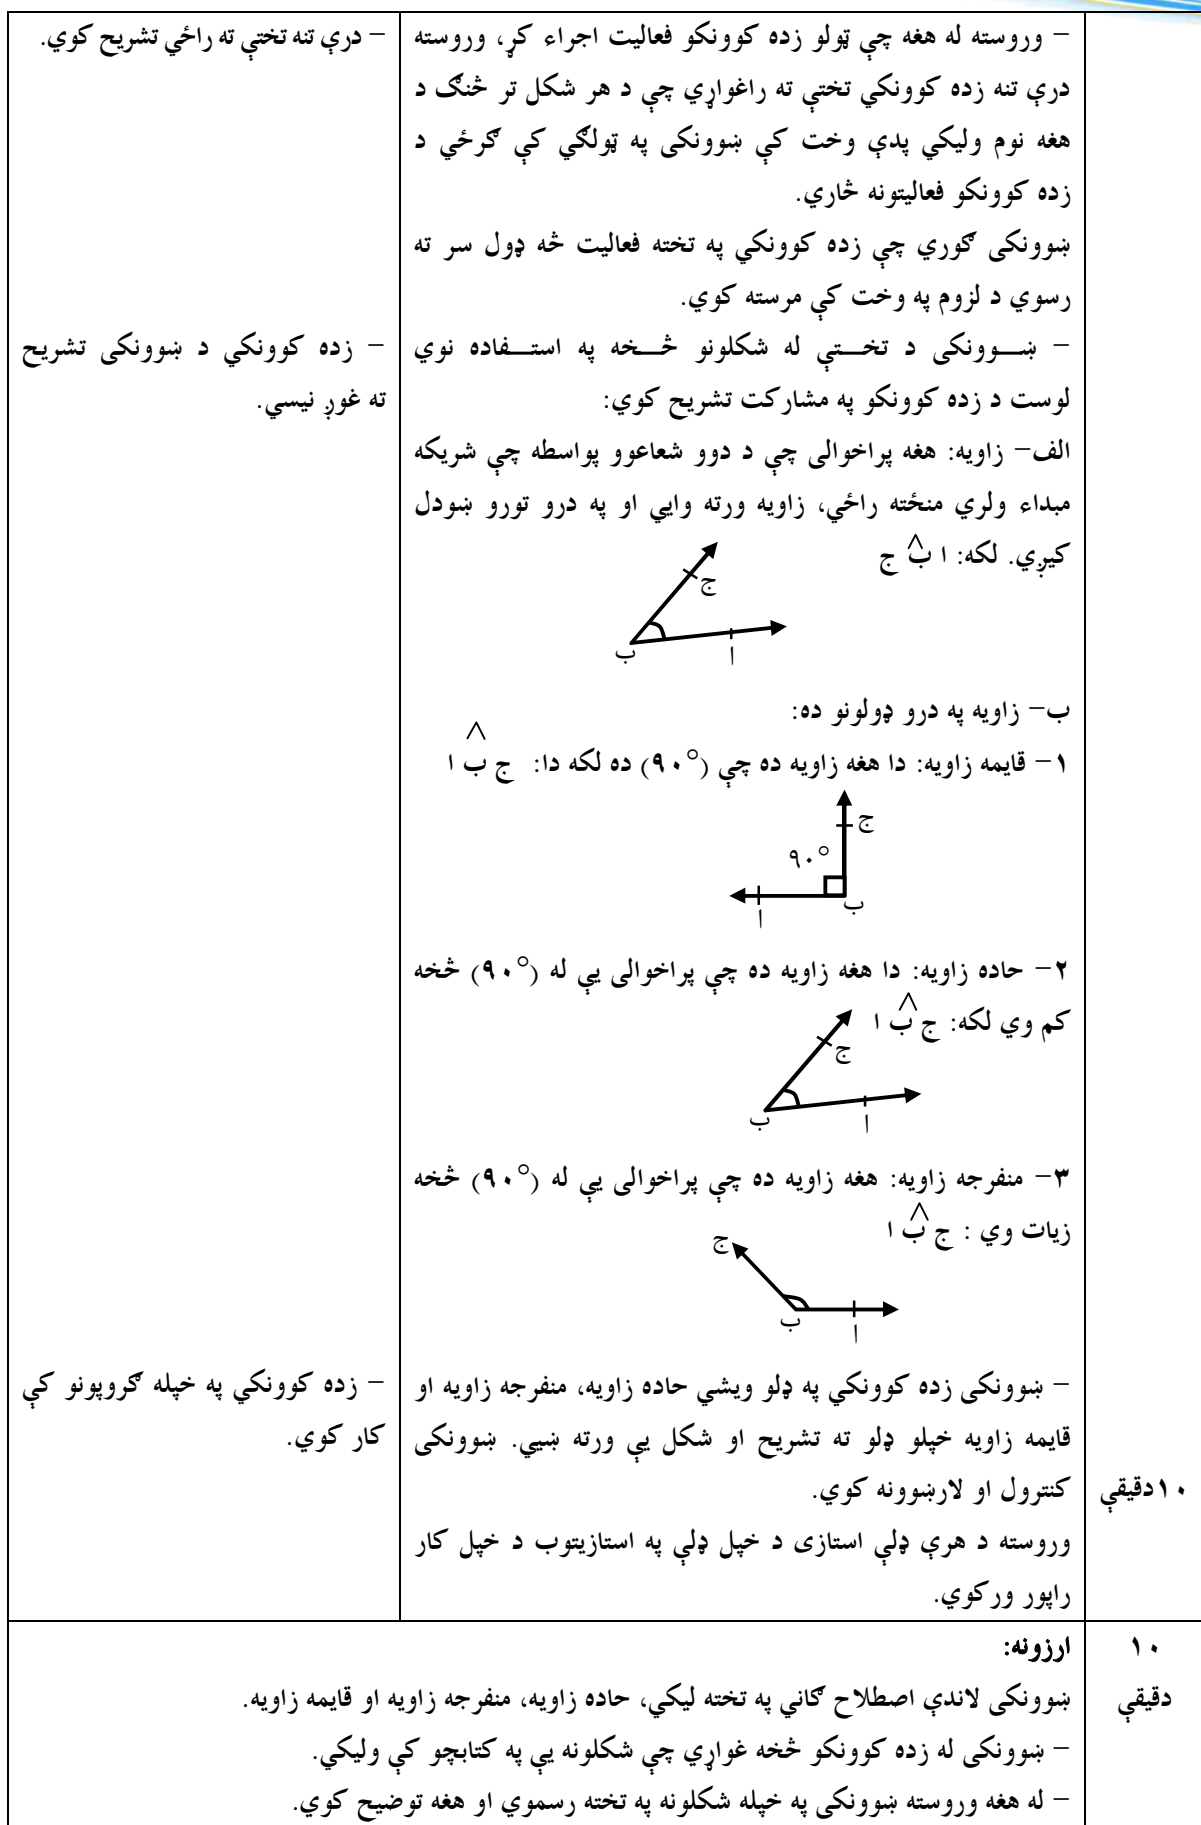 – وروسته له هغه چې ټولو زده کوونکو فعالیت اجراء کړ، وروسته
درې تنه زده کوونکي تختې ته راغواړي چې د هر شکل تر څنګ د
هغه نوم ولیکي پدې وخت کې ښوونکی په ټولګي کې ګرځي د
زده کوونکو فعالیتونه څاري.
ښوونکی ګوري چې زده کوونکي په تخته فعالیت څه ډول سر ته
رسوي د لزوم په وخت کې مرسته کوي.
– ښوونکی د تختې له شکلونو څخه په استفاده نوي
لوست د زده کوونکو په مشارکت تشریح کوي:
الف– زاویه: هغه پراخوالی چې د دوو شعاعوو پواسطه چې شریکه
مبداء ولري منځته راځي، زاویه ورته وایي او په درو تورو ښودل
کیږي. لکه: ا ب^ ج
ج
ب
ا
ب– زاویه په درو ډولونو ده:
۱– قایمه زاویه: دا هغه زاویه ده چې (۹۰°) ده لکه دا: ج ب^ ا
ج
۹۰°
ب
ا
۲– حاده زاویه: دا هغه زاویه ده چې پراخوالی یې له (۹۰°) څخه
کم وي لکه: ج ب^ ا
ج
ب
ا
۳– منفرجه زاویه: هغه زاویه ده چې پراخوالی یې له (۹۰°) څخه
زیات وي : ج ب^ ا
ج
ب
ا
– ښوونکی زده کوونکي په ډلو ویشي حاده زاویه، منفرجه زاویه او
قایمه زاویه خپلو ډلو ته تشریح او شکل یې ورته ښیي. ښوونکی
کنترول او لارښوونه کوي.
وروسته د هرې ډلې استازی د خپل ډلې په استازیتوب د خپل کار
راپور ورکوي.
– درې تنه تختې ته راځي تشریح کوي.
– زده کوونکي د ښوونکی تشریح
ته غوږ نیسي.
– زده کوونکي په خپله ګروپونو کې
کار کوي.
۱۰دقیقې
۱۰
دقیقې
ارزونه:
ښوونکی لاندې اصطلاح ګاني په تخته لیکي، حاده زاویه، منفرجه زاویه او قایمه زاویه.
– ښوونکی له زده کوونکو څخه غواړي چې شکلونه یې په کتابچو کې ولیکي.
– له هغه وروسته ښوونکی په خپله شکلونه په تخته رسموي او هغه توضیح کوي.